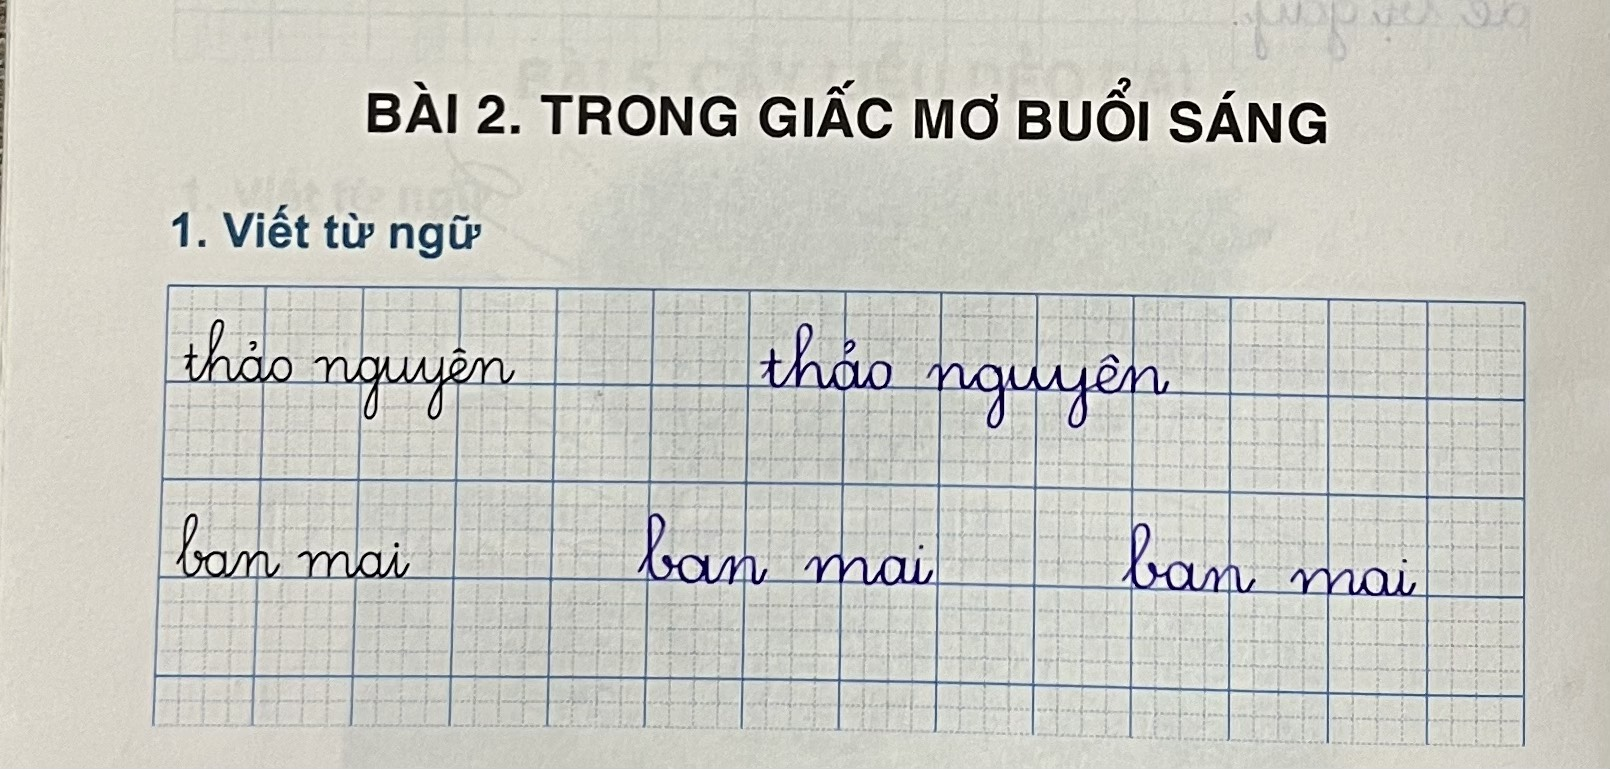 BÀI 2. TRONG GIẤC MƠ BUỔI SÁNG
1. Viết từ ngữ
thảo nguyên thảo nguyên
ban mai ban mai ban mai